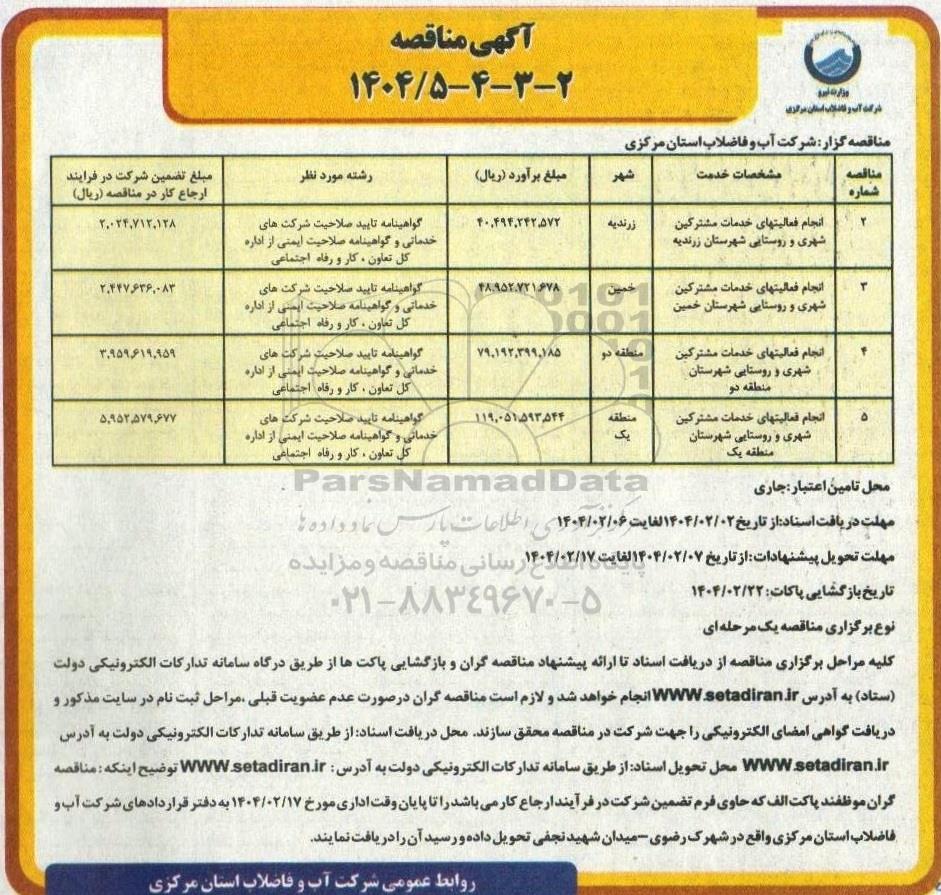 آگهی مناقصه
۱۴۰۴/۵-۴-۳-۲
وزارت نیرو
شرکت آب و فاضلاب استان مرکزی
مناقصه گزار: شرکت آب و فاضلاب استان مرکزی
مناقصه شماره | مشخصات خدمت | شهر | مبلغ برآورد (ریال) | رشته مورد نظر | مبلغ تضمین شرکت در فرایند ارجاع کار در مناقصه (ریال)
۲ | انجام فعالیتهای خدمات مشترکین شهری و روستایی شهرستان زرندیه | زرندیه | ۴۰,۴۹۴,۲۴۲,۵۷۲ | گواهینامه تایید صلاحیت شرکت های خدماتی و گواهینامه صلاحیت ایمنی از اداره کل تعاون ، کار و رفاه اجتماعی | ۲,۰۲۴,۷۱۲,۱۲۸
۳ | انجام فعالیتهای خدمات مشترکین شهری و روستایی شهرستان خمین | خمین | ۴۸,۹۵۲,۷۲۱,۶۷۸ | گواهینامه تایید صلاحیت شرکت های خدماتی و گواهینامه صلاحیت ایمنی از اداره کل تعاون ، کار و رفاه اجتماعی | ۲,۴۴۷,۶۳۶,۰۸۳
۴ | انجام فعالیتهای خدمات مشترکین شهری و روستایی شهرستان منطقه دو | منطقه دو | ۷۹,۱۹۲,۳۹۹,۱۸۵ | گواهینامه تایید صلاحیت شرکت های خدماتی و گواهینامه صلاحیت ایمنی از اداره کل تعاون ، کار و رفاه اجتماعی | ۳,۹۵۹,۶۱۹,۹۵۹
۵ | انجام فعالیتهای خدمات مشترکین شهری و روستایی شهرستان منطقه یک | منطقه یک | ۱۱۹,۰۵۱,۵۹۳,۵۴۴ | گواهینامه تایید صلاحیت شرکت های خدماتی و گواهینامه صلاحیت ایمنی از اداره کل تعاون ، کار و رفاه اجتماعی | ۵,۹۵۲,۵۷۹,۶۷۷
ParsNamadData
محل تامین اعتبار: جاری
مهلت دریافت اسناد: از تاریخ ۱۴۰۴/۰۲/۰۲ لغایت ۱۴۰۴/۰۲/۰۶
مرکز فرآوری اطلاعات پارس نماد داده ها
مهلت تحویل پیشنهادات: از تاریخ ۱۴۰۴/۰۲/۰۷ لغایت ۱۴۰۴/۰۲/۱۷
پایگاه اطلاع رسانی مناقصه و مزایده
تاریخ بازگشایی پاکات: ۱۴۰۴/۰۲/۲۲
۰۲۱-۸۸۳۴۹۶۷۰-۵
نوع برگزاری مناقصه یک مرحله ای
کلیه مراحل برگزاری مناقصه از دریافت اسناد تا ارائه پیشنهاد مناقصه گران و بازگشایی پاکت ها از طریق درگاه سامانه تدارکات الکترونیکی دولت
(ستاد) به آدرس WWW.setadiran.ir انجام خواهد شد و لازم است مناقصه گران درصورت عدم عضویت قبلی ،مراحل ثبت نام در سایت مذکور و
دریافت گواهی امضای الکترونیکی را جهت شرکت در مناقصه محقق سازند. محل دریافت اسناد: از طریق سامانه تدارکات الکترونیکی دولت به آدرس
WWW.setadiran.ir محل تحویل اسناد: از طریق سامانه تدارکات الکترونیکی دولت به آدرس : WWW.setadiran.ir توضیح اینکه : مناقصه
گران موظفند پاکت الف که حاوی فرم تضمین شرکت در فرآیند ارجاع کار می باشد را تا پایان وقت اداری مورخ ۱۴۰۴/۰۲/۱۷ به دفتر قراردادهای شرکت آب و
فاضلاب استان مرکزی واقع در شهرک رضوی – میدان شهید نجفی تحویل داده و رسید آن را دریافت نمایند.
روابط عمومی شرکت آب و فاضلاب استان مرکزی